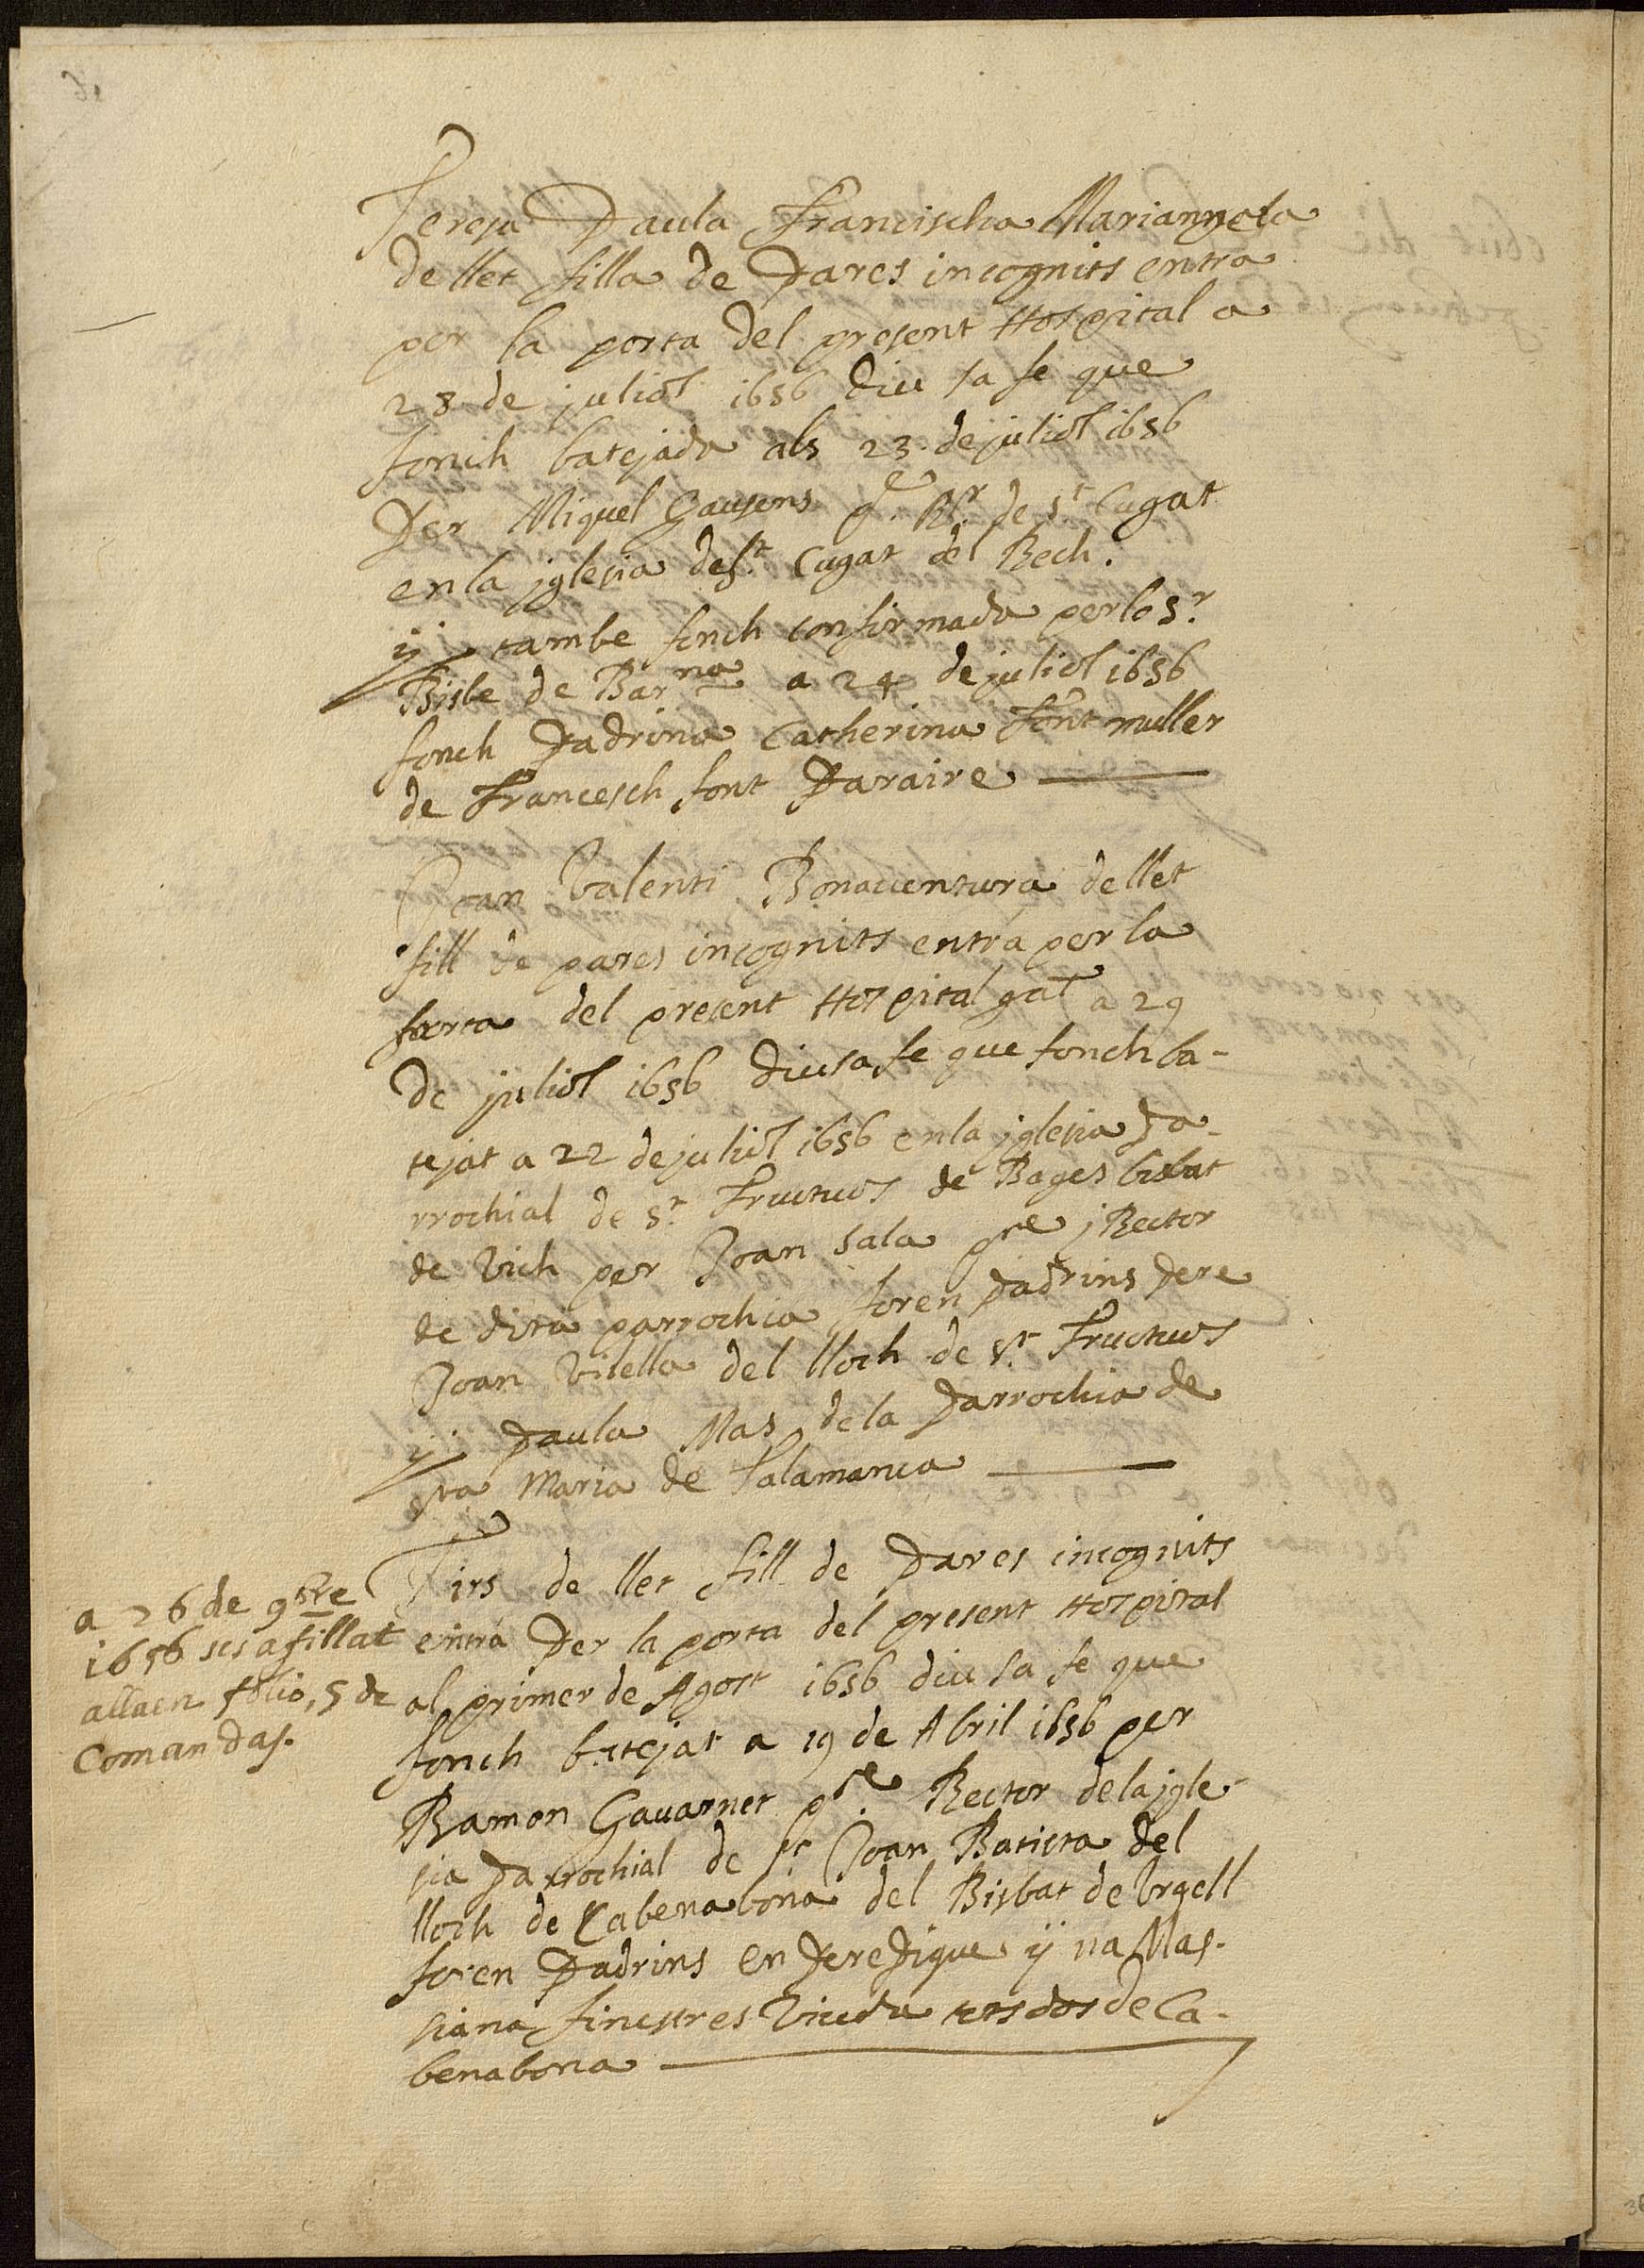 Teresa Paula Francischa Mariangela
de llet filla de Pares incognits entra
per la porta del present Hospital a
28 de juliol 1656 diu sa fe que
fonch batejada als 23. de juliol 1656
Per Miquel Gausens
de St Cugat
en la jglesia de St. Cugat del Rech.
ÿ tambe fonch confirmada per lo Sr.
Bisbe de Barna a 24 de juliol 1656
fonch Padrina Catherina Font muller
de Francesch font Paraire
Joan Valenti Bonaventura de llet
fill de pares incognits entrá per la
porta del present Hospital gal a 29
de juliol 1656 diu sa fe que fonch ba-
tejat a 22 de juliol 1656 en la jglesia Pa-
rrochial de St. Fructuos de Bages bisbat
de Vich per Joan Sala pre j Rector
de dita parrochia foren Padrins Pere
Joan Vilella del lloch de St. Fructuos
ÿ Paula Mas de la Parrochia de
Sta Maria de Salamanca
Tirs de llet fill de Pares incognits
entrá Per la porta del present Hospital
al primer de Agost 1656 diu sa fe que
fonch batejat a 19 de Abril 1656 per
Ramon Gavarnet pre. Rector de la jgle-
sia Parrochial de St Joan Batista del
lloch de Cabenabona del Bisbat de Urgell
foren Padrins en Pere Pique ÿ na Mas-
siana finestres Viuda tots dos de Ca-
benabona
a 26 de 9bre
1656 ses afillat
allaen folio, 5 de
Comandas.